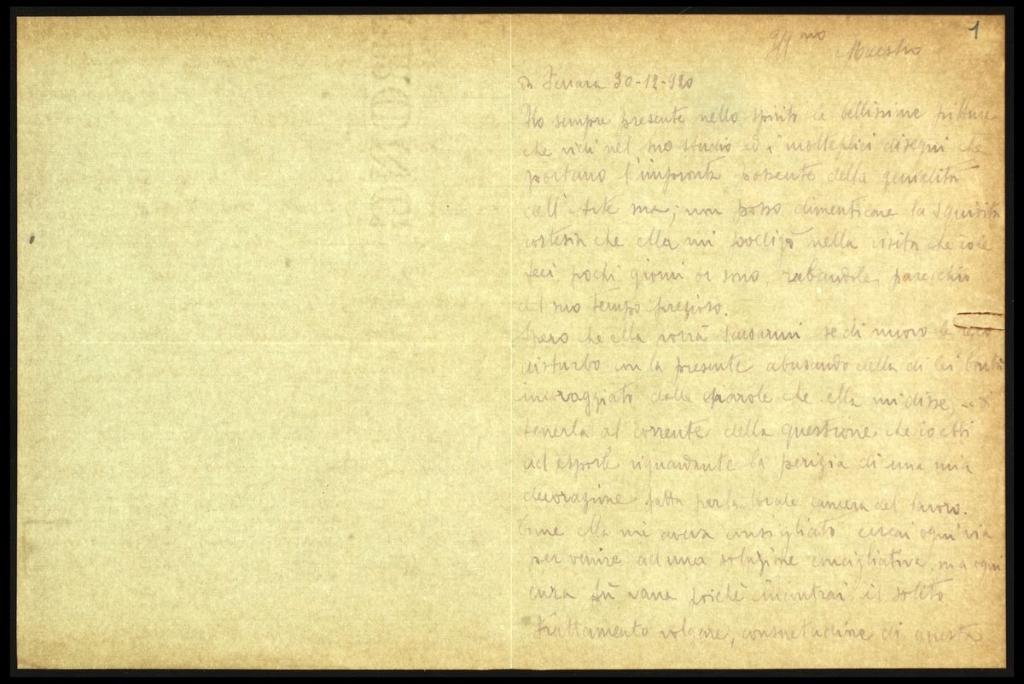 1
Maestro
Da Ferrara 30-12-920
Ho sempre presente nello spirito le bellissime pitture
che vidi nel suo studio ed i molteplici disegni che
portano l'impronta possente della genialità
dell'Arte ma, non posso dimenticare la squisita
cortesia che ella mi nella visita che io le
feci pochi giorni or sono, rubandole parecchio
del suo tempo prezioso.
Spero che ella vorrà scusarmi se di nuovo le
disturbo con la presente abusando della di lei bontà
incoraggiato dalle parole che ella mi disse, di
tenerla al corrente della questione che io ebbi
ad esporle riguardante la perizia di una mia
decorazione fatta per la locale camera del lavoro.
Come ella mi aveva consigliato cercai ogni via
per venire ad una soluzione conciliativa, ma ogni
cura fù vana poichè incontrai il solito
trattamento volgare, consuetudine di questa